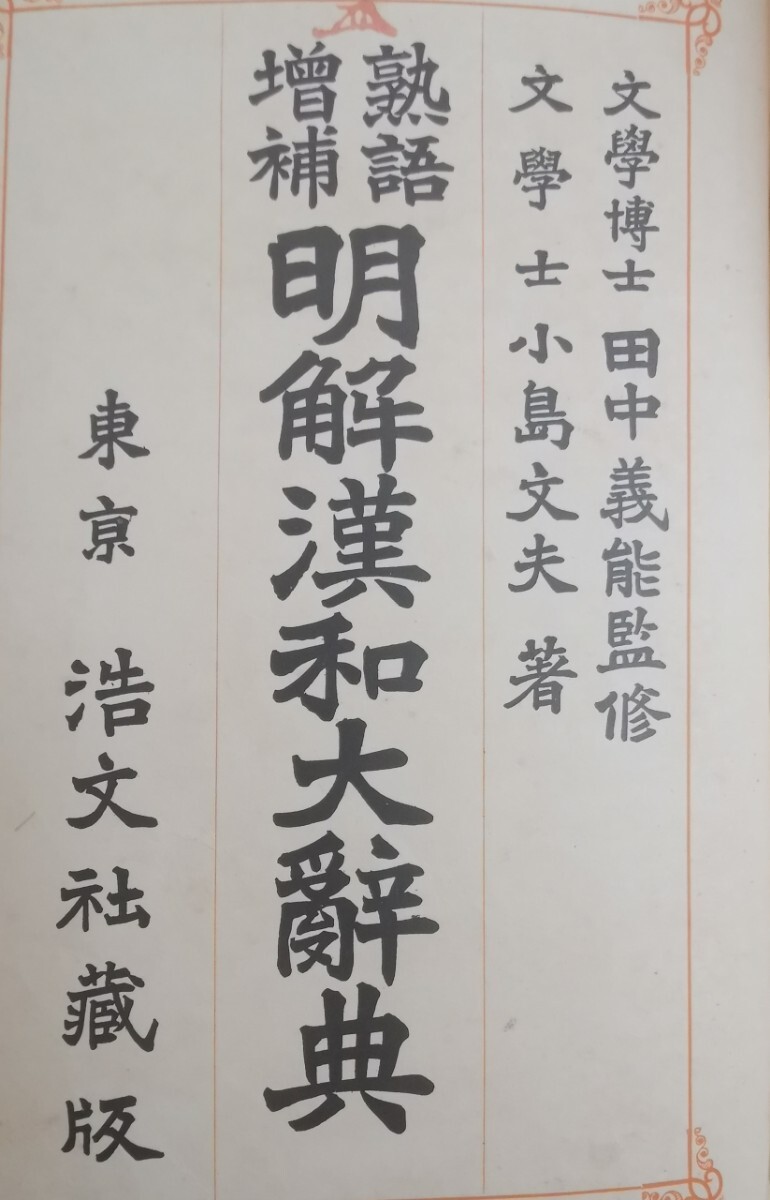 文學博士 田中義能監修
文學士 小島文夫 著
熟語
增補
明解漢和大辭典
東京 浩文社藏版